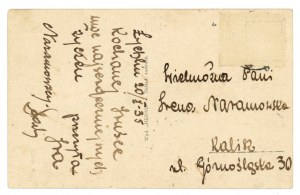 Żychlin 20/I-35
Kochanej Irusce
moc najserdeczniejszych
życzeń przesyła
Iza
Naramowsky
Wielmożna Pani
Irena Naramowska
Kalisz
ul. Górnośląska 30